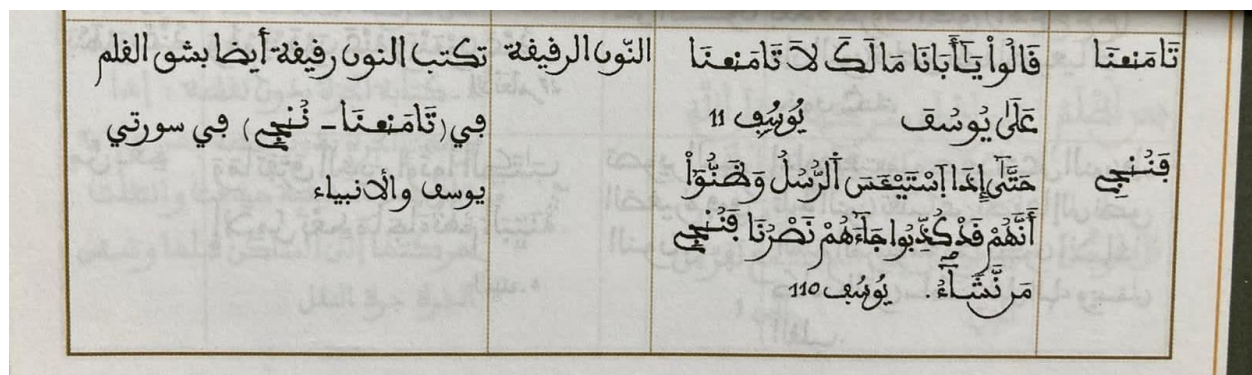 تَامَ۬نَّا
فَنُنجِے
قَالُواْ يَٰٓأَبَانَا مَا لَكَ لَا تَامَ۬نَّا
عَلَىٰ يُوسُفَ يُوسُف 11
حَتَّىٰٓ إِذَا اَسْتَيْـَٔسَ اَ۬لرُّسُلُ وَظَنُّوٓاْ
أَنَّهُمْ قَدْ كُذِّبُواْ جَآءَهُمْ نَصْرُنَا فَنُنجِے
مَن نَّشَآءُ. يُوسُف 110
النّون الرقيقة
تكتب النون رقيقة أيضا بشق القلم
في (تَامَ۬نَّا - نُنجِے) في سورتي
يوسف والانبياء